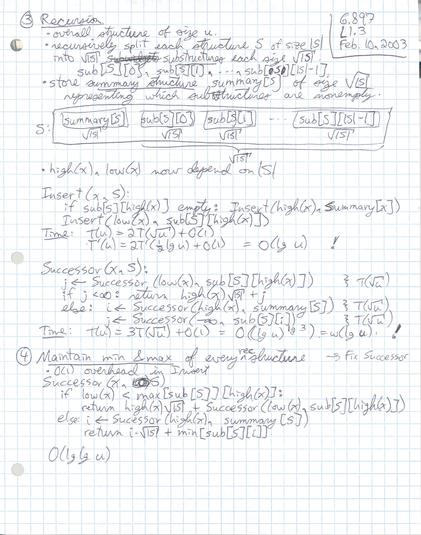 ③ Recursion
6.897
L1.3
Feb. 10, 2003
• overall structure of size u.
• recursively split each structure S of size |S|
into √|S| substructures each size √|S|
sub[S][0], sub[S][1], ..., sub[S][√|S|-1],
• store summary structure summary[S] of size √|S|
representing which substructures are nonempty.
S: summary[S] sub[S][0] sub[S][1] ... sub[S][√|S|-1]
√|S| √|S| √|S| √|S|
√|S|
• high(x), low(x) now depend on |S|
Insert(x, S):
if sub[S][high(x)] empty: Insert(high(x), summary[x])
Insert(low(x), sub[S][high(x)])
Time: T(u) = 2T(√u) + O(1)
T'(u) = 2T'(½ lg u) + O(1) = O(lg u) !
Successor(x, S):
j ← Successor(low(x), sub[S][high(x)]) } T(√u)
if j < ∞: return high(x)√|S| + j
else: i ← Successor(high(x), summary[S]) } T(√u)
j ← Successor(-∞, sub[S][i]) } T(√u)
Time: T(u) = 3T(√u) + O(1) = O((lg u)^lg 3) = ω(lg u). !
④ Maintain min & max of every rec structure → Fix Successor
• O(1) overhead in Insert
Successor(x, S)
if low(x) < max[sub[S][high(x)]:
return high(x)√|S| + Successor(low(x), sub[S][high(x)])
else: i ← Sucessor(high(x), summary[S])
return i·√|S| + min[sub[S][i]]
O(lg lg u)